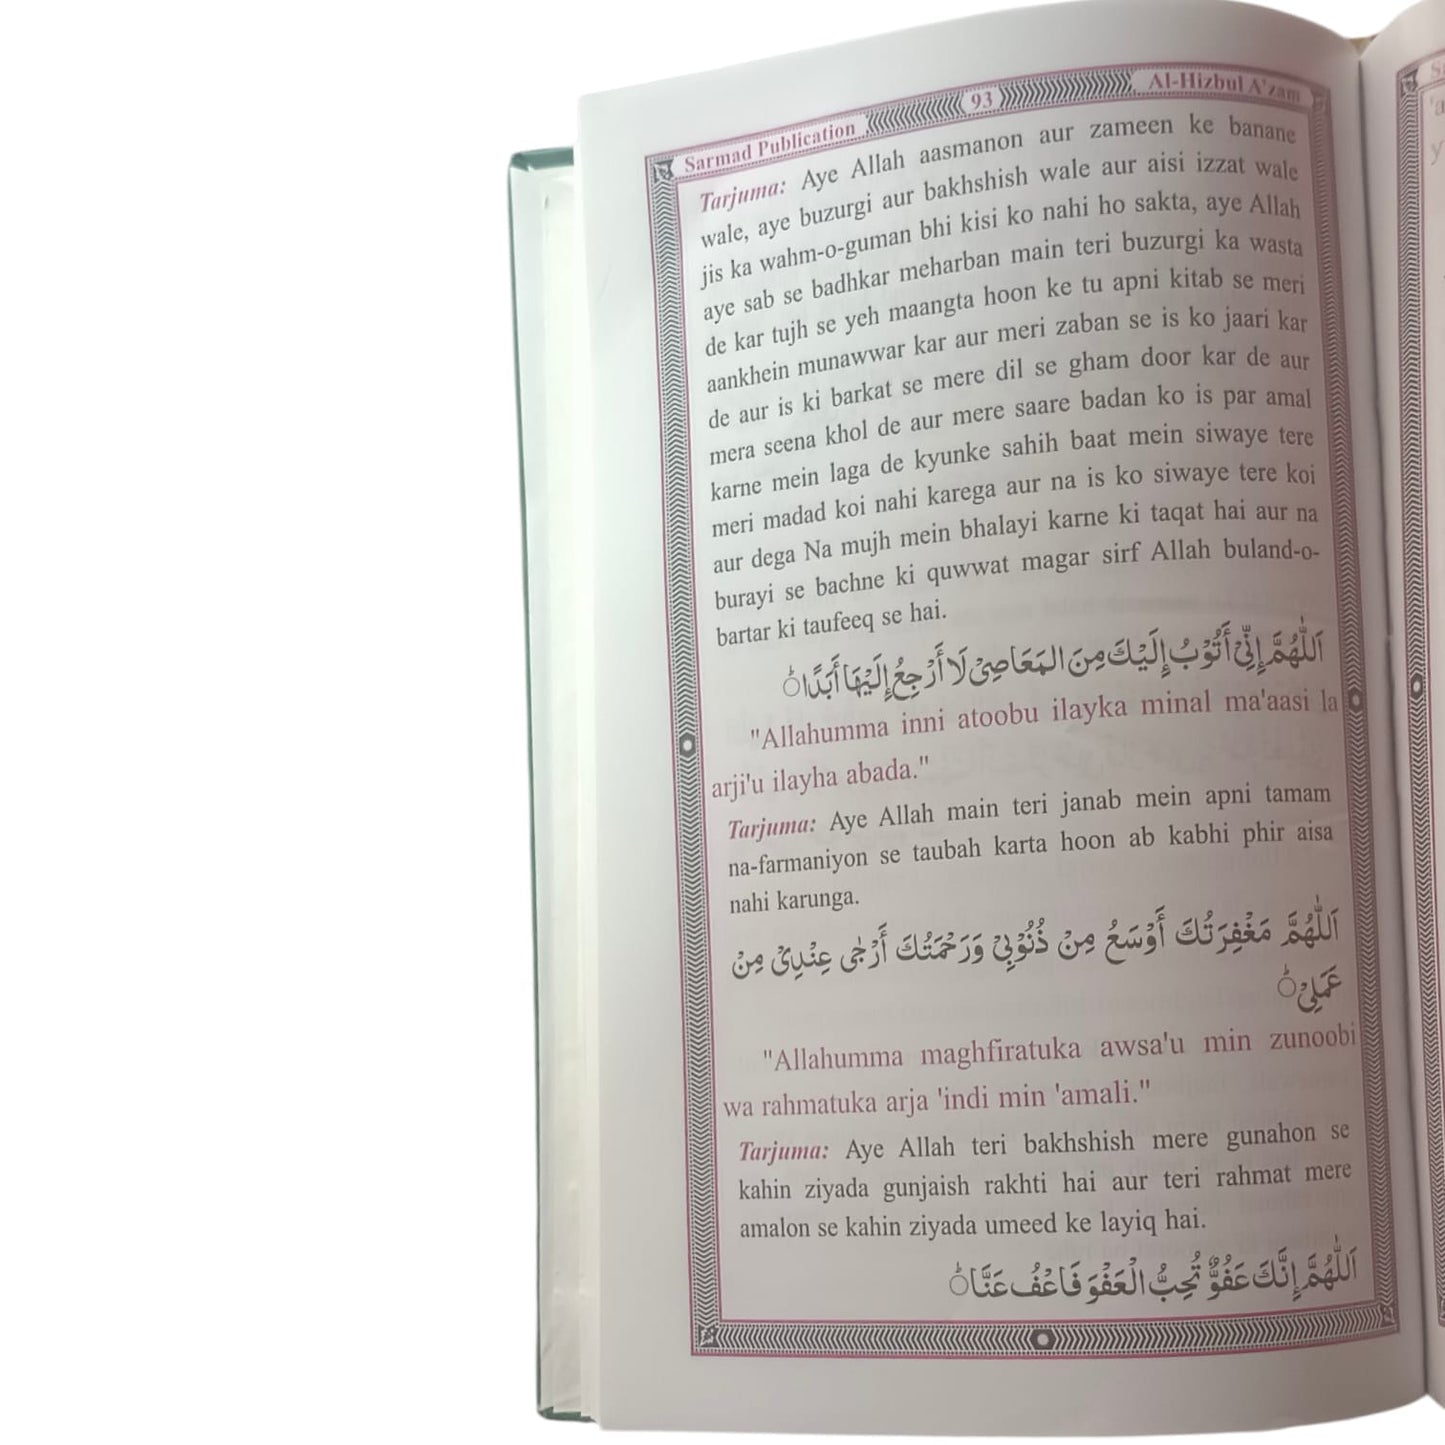 Sarmad Publication 93 Al-Hizbul A'zam
Tarjuma: Aye Allah aasmanon aur zameen ke banane
wale, aye buzurgi aur bakhshish wale aur aisi izzat wale
jis ka wahm-o-guman bhi kisi ko nahi ho sakta, aye Allah
aye sab se badhkar meharban main teri buzurgi ka wasta
de kar tujh se yeh maangta hoon ke tu apni kitab se meri
aankhein munawwar kar aur meri zaban se is ko jaari kar
de aur is ki barkat se mere dil se gham door kar de aur
mera seena khol de aur mere saare badan ko is par amal
karne mein laga de kyunke sahih baat mein siwaye tere
meri madad koi nahi karega aur na is ko siwaye tere koi
aur dega Na mujh mein bhalayi karne ki taqat hai aur na
burayi se bachne ki quwwat magar sirf Allah buland-o-
bartar ki taufeeq se hai.
اَللّٰهُمَّ إِنِّيْ أَتُوْبُ إِلَيْكَ مِنَ المَعَاصِيْ لَا أَرْجِعُ إِلَيْهَا أَبَدًا
"Allahumma inni atoobu ilayka minal ma'aasi la
arji'u ilayha abada."
Tarjuma: Aye Allah main teri janab mein apni tamam
na-farmaniyon se taubah karta hoon ab kabhi phir aisa
nahi karunga.
اَللّٰهُمَّ مَغْفِرَتُكَ أَوْسَعُ مِنْ ذُنُوْبِيْ وَرَحْمَتُكَ أَرْجٰى عِنْدِيْ مِنْ
عَمَلِيْ
"Allahumma maghfiratuka awsa'u min zunoobi
wa rahmatuka arja 'indi min 'amali."
Tarjuma: Aye Allah teri bakhshish mere gunahon se
kahin ziyada gunjaish rakhti hai aur teri rahmat mere
amalon se kahin ziyada umeed ke layiq hai.
اَللّٰهُمَّ إِنَّكَ عَفُوٌّ تُحِبُّ الْعَفْوَ فَاعْفُ عَنَّا